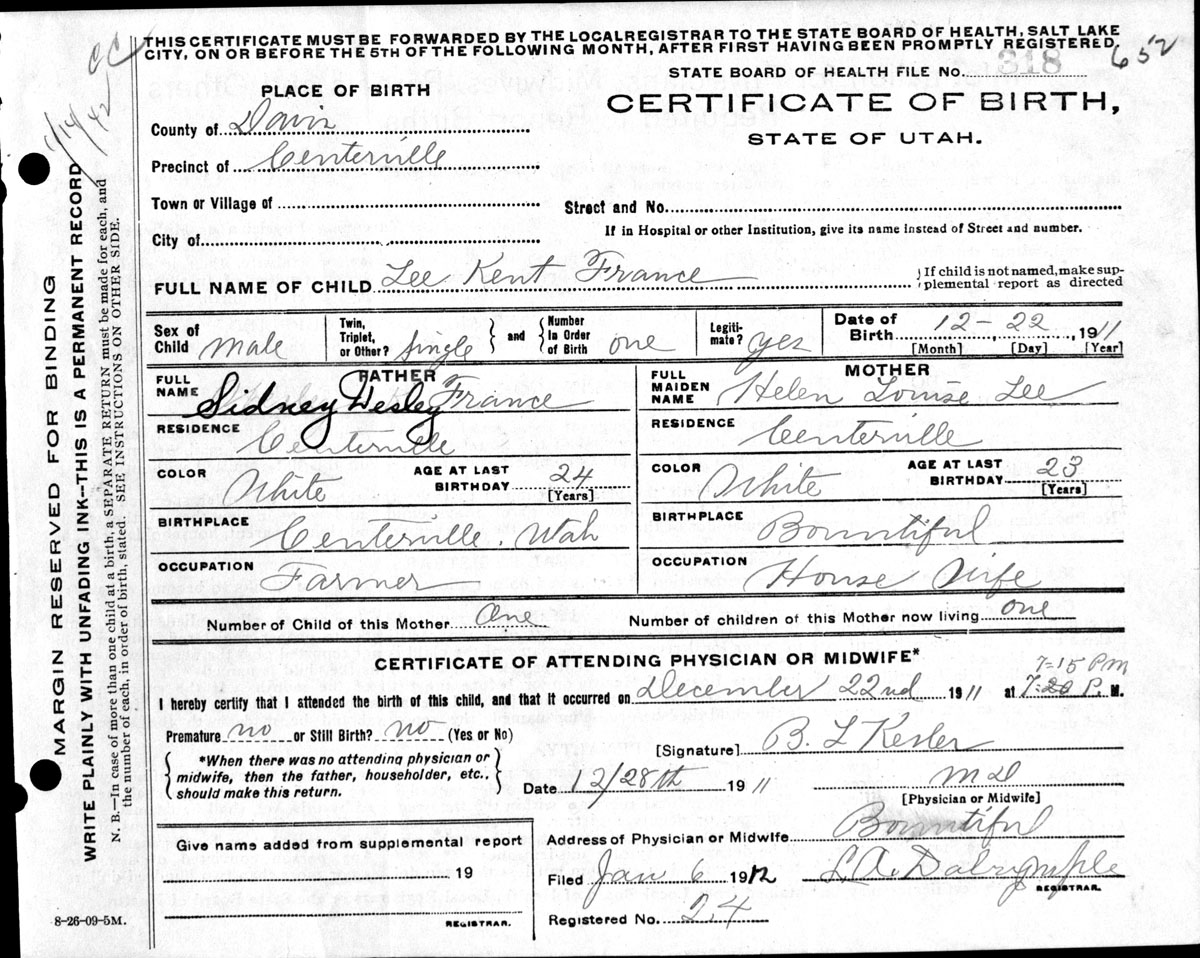 THIS CERTIFICATE MUST BE FORWARDED BY THE LOCALREGISTRAR TO THE STATE BOARD OF HEALTH, SALT LAKE
CITY, ON OR BEFORE THE 5TH OF THE FOLLOWING MONTH, AFTER FIRST HAVING BEEN PROMPTLY REGISTERED.
652
STATE BOARD OF HEALTH FILE No. 318
PLACE OF BIRTH
CERTIFICATE OF BIRTH,
STATE OF UTAH.
County of Davis
Precinct of Centerville
Town or Village of
Street and No.
If in Hospital or other Institution, give its name instead of Street and number.
City of
FULL NAME OF CHILD Lee Kent France
If child is not named, make sup-
plemental report as directed
Sex of Child Male
Twin, Triplet, or Other? Single
and
Number In Order of Birth one
Legiti-mate? yes
Date of Birth 12-22 1911
[Month] [Day] [Year]
FATHER
FULL NAME Sidney Wesley France
RESIDENCE Centerville
COLOR White AGE AT LAST BIRTHDAY 24
[Years]
BIRTHPLACE Centerville. Utah
OCCUPATION Farmer
MOTHER
FULL MAIDEN NAME Helen Louise Lee
RESIDENCE Centerville
COLOR White AGE AT LAST BIRTHDAY 23
[Years]
BIRTHPLACE Bountiful
OCCUPATION House Wife
Number of Child of this Mother One Number of children of this Mother now living one
CERTIFICATE OF ATTENDING PHYSICIAN OR MIDWIFE*
7-15 PM
I hereby certify that I attended the birth of this child, and that it occurred on December 22nd 1911 at 7-20 P. M.
Premature no or Still Birth? no (Yes or No)
[Signature] B. L Kesler
*When there was no attending physician or
midwife, then the father, householder, etc.,
should make this return.
Date 12/28th 1911
M D
[Physician or Midwife]
Give name added from supplemental report
19
REGISTRAR.
Address of Physician or Midwife Bountiful
Filed Jan 6 1912 L. A. Dalrymple
REGISTRAR.
Registered No. 24
8-26-09-5M.
MARGIN RESERVED FOR BINDING
WRITE PLAINLY WITH UNFADING INK--THIS IS A PERMANENT RECORD
N. B.—In case of more than one child at a birth, a SEPARATE RETURN must be made for each, and
the number of each, in order of birth, stated. SEE INSTRUCTIONS ON OTHER SIDE.